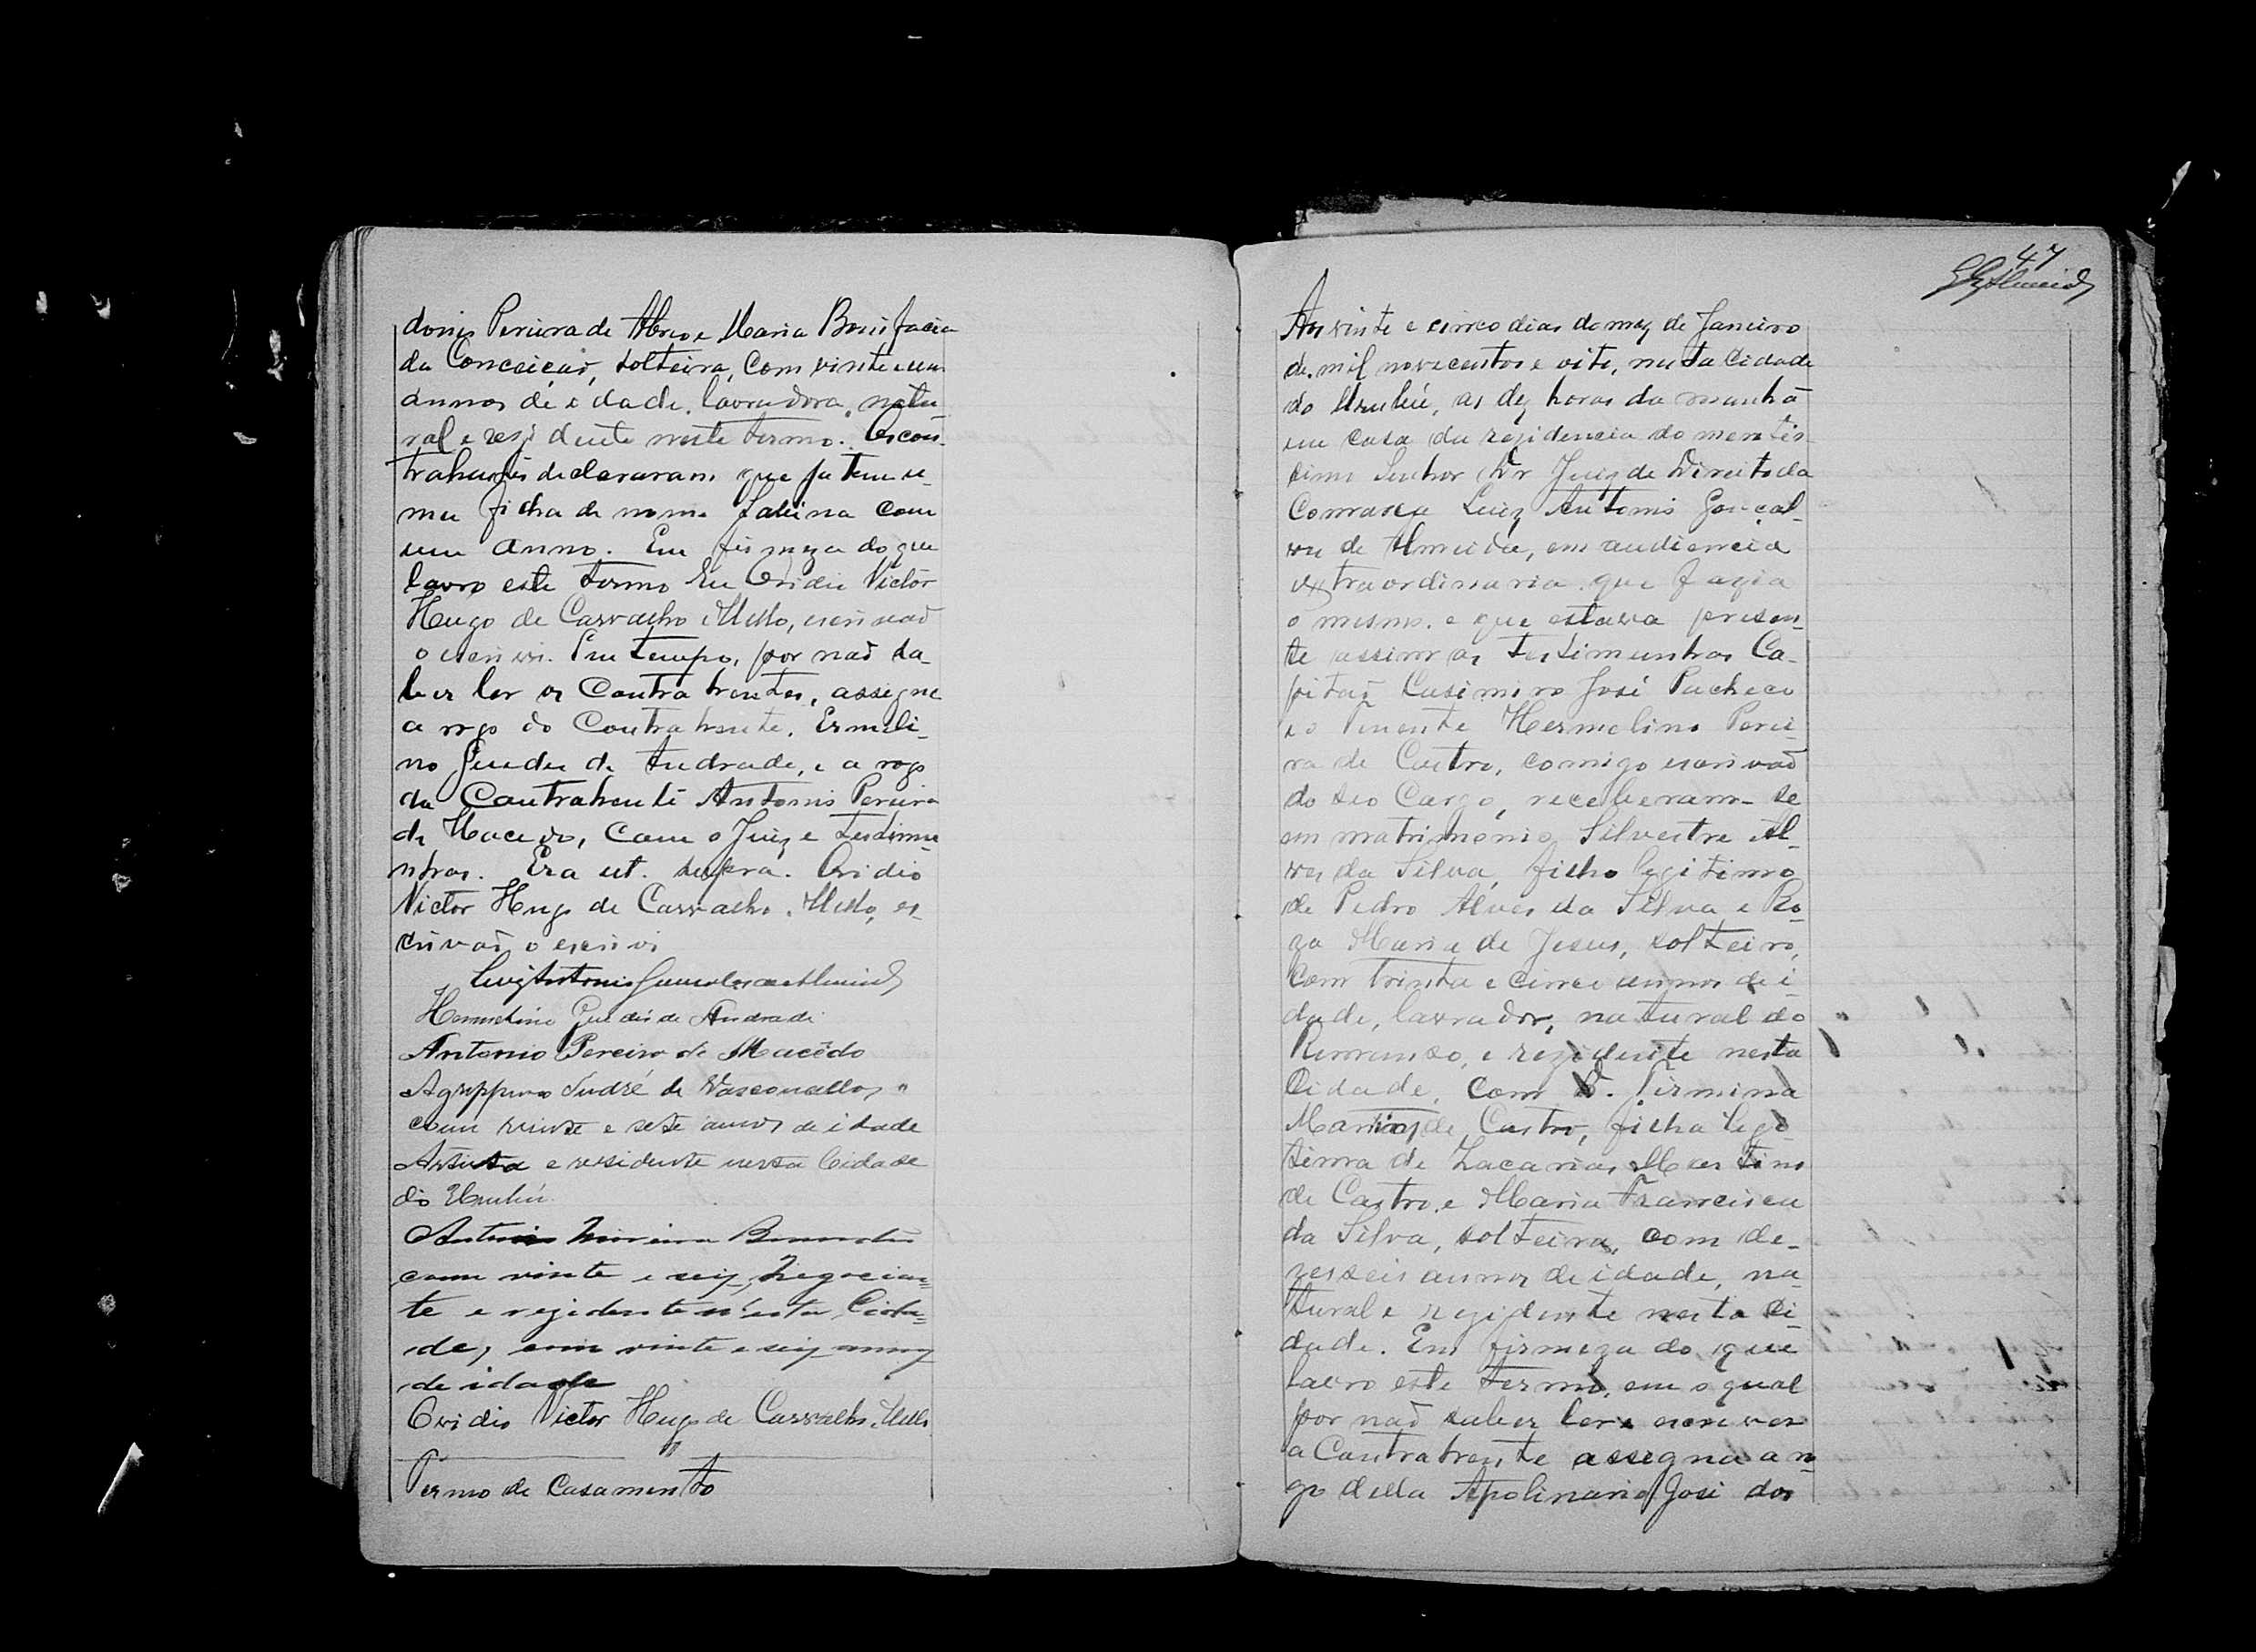 donis Pereira de Abreo e Maria Bonifacia
da Conceição, solteira, com vinte e um
annos de idade, lavradora, natu-
ral e rezidente neste termo. Os con-
trahentes declararam que ja tem u-
ma filha de nome Sabina com
um anno. Em firmeza do que
lavro este termo Eu Ovidio Victor
Hugo de Carvalho Mello, escrivaõ
o escrevi. Em tempo, por naõ sa-
ber ler os Contrahentes, assigne
a rogo do Contrahente, Ermeli-
no Guedes de Andrade, e a rogo
da Contrahente Antonio Pereira
de Macedo, com o Juiz e testimu-
nhas. Era ut supra. Ovidio
Victor Hugo de Carvalho Mello, es-
crivaõ o escrevi
Luiz Antonio Gonçalves de Almeida
Hermelino Guedes de Andrade
Antonio Pereira de Macêdo
Agrippino André de Vasconcellos
com vinte e sete annos de idade
Artista e residente nesta Cidade
do Urubú
Antonio Moreira
com vinte e seis, Negocian-
te e rezidente n'esta Cida-
de, com vinte e seis annos
de idade
Ovidio Victor Hugo de Carvalho Mello
Termo de Casamento
47
GAlmeida
Aos vinte e cinco dias do mez de Janeiro
de mil novecentos e oito, nesta Cidade
do Urubú, as dez horas da manhã
em casa da rezidencia do meretis-
simo Senhor Dr Juiz de Direito da
Comarca Luiz Antonio Gonçal-
ves de Almeida, em audiencia
extraordinaria que fazia
o mesmo, e que estava presen-
te assim as testimunhas Ca-
pitaõ Casimiro José Pacheco
e o Tenente Hermelino Perei-
ra de Castro, comigo escrivaõ
do seo Cargo, receberam-se
em matrimonio Silvestre Al-
ves da Silva, filho legitimo
de Pedro Alves da Silva e Ro-
za Maria de Jesus, solteiro,
com trinta e cinco annos de i-
dade, lavrador, natural do
Remanso, e rezidente nesta
Cidade, com D. Firmina
Martins de Castro, filha legi-
tima de Zacarias Martins
de Castro e Maria Francisca
da Silva, solteira, com de-
zesseis annos de idade, na-
tural e rezidente nesta Ci-
dade. Em firmeza do que
lavro este termo, em o qual
por naõ saber ler e escrever
a Contrahente assigna a ro-
go della Apolinario José dos